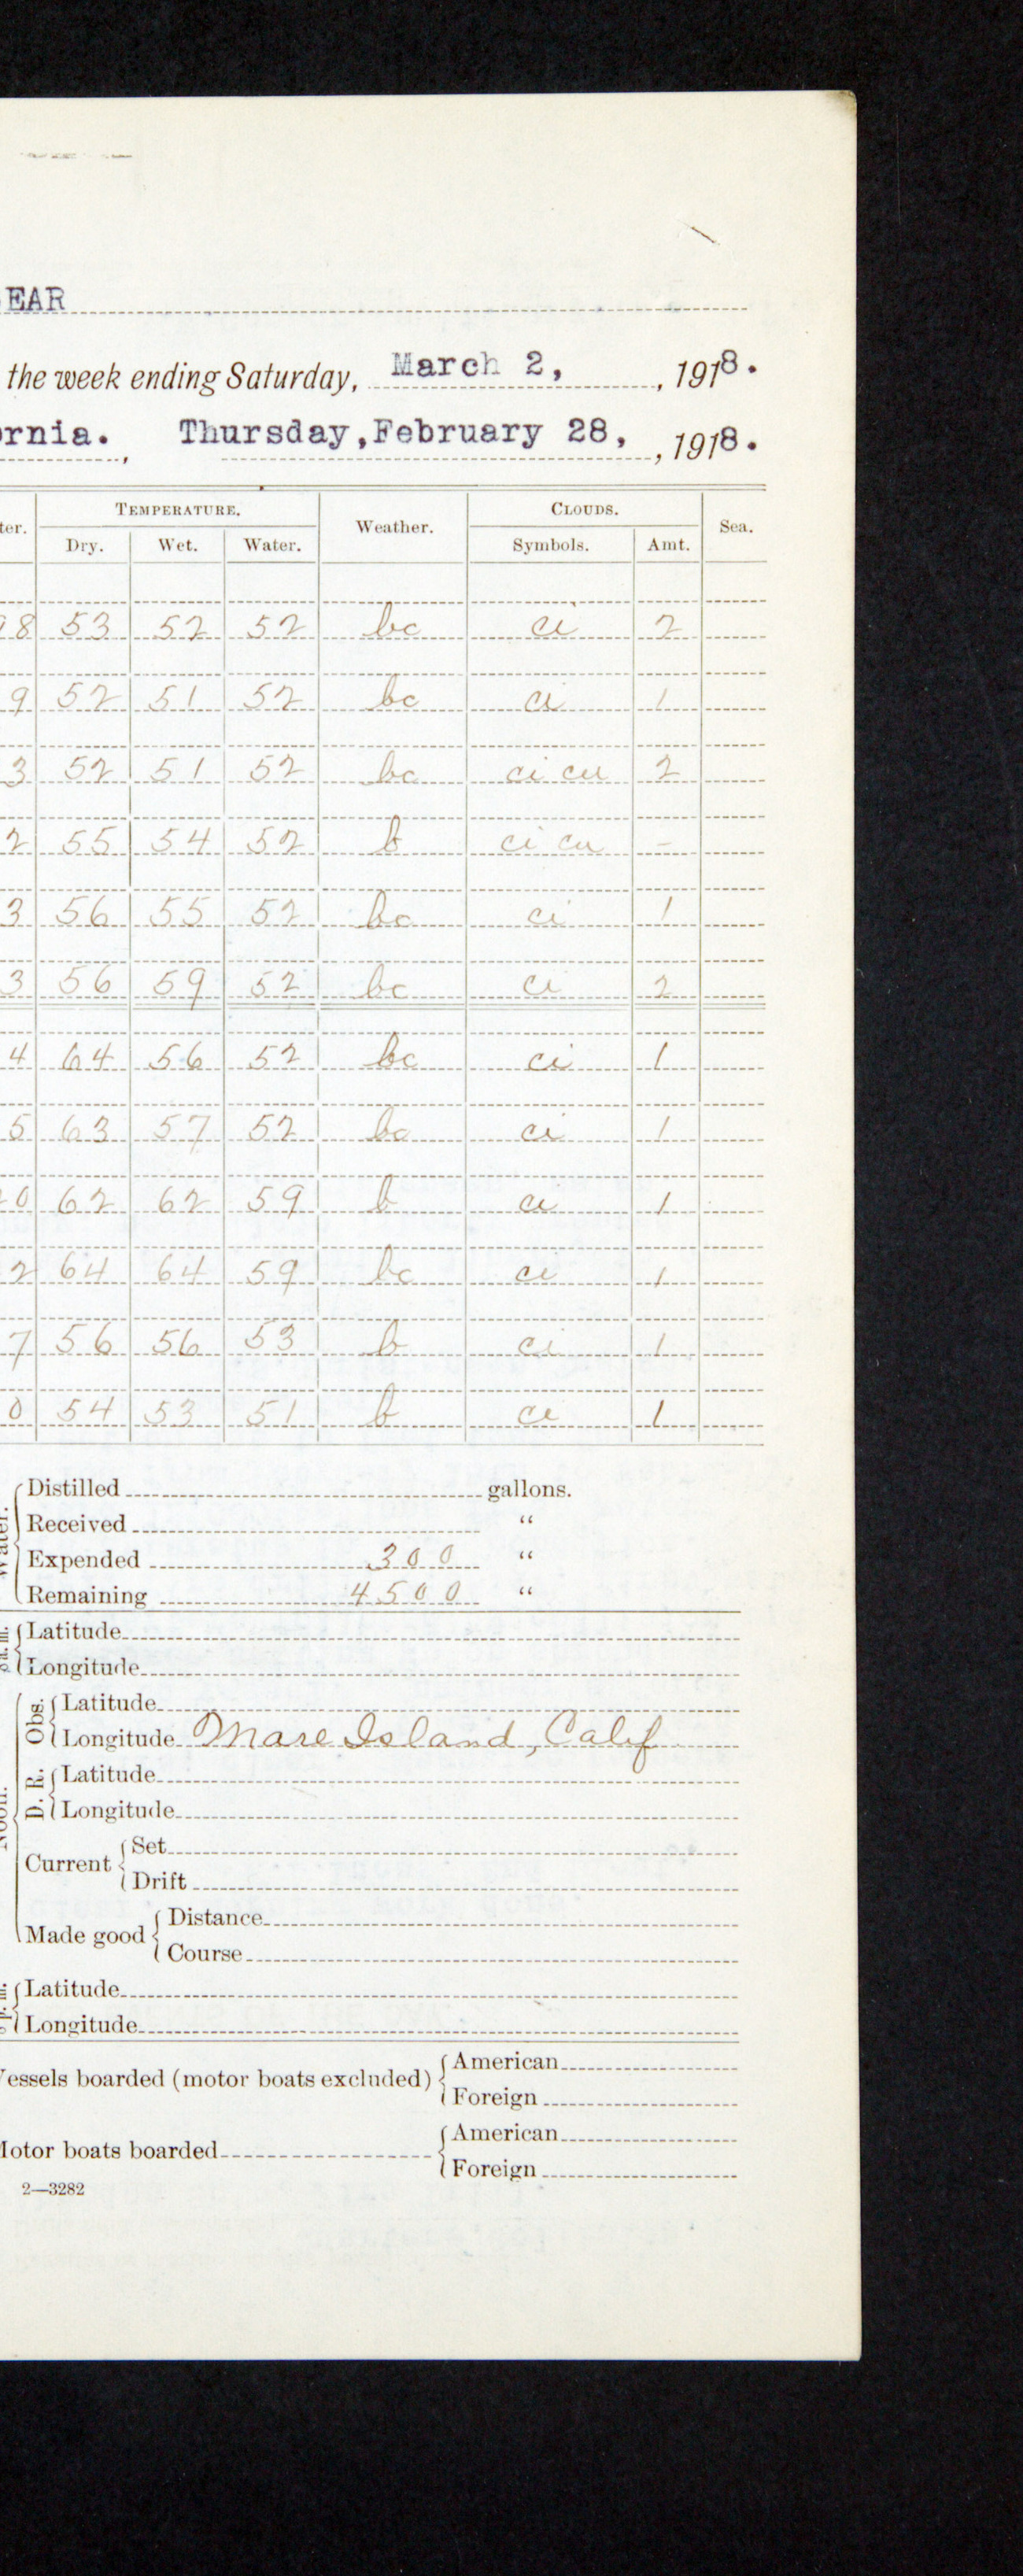 EAR
the week ending Saturday, March 2, , 1918.
ornia. Thursday, February 28, , 1918.
ter. TEMPERATURE. Weather. CLOUDS. Sea.
Dry. Wet. Water. Symbols. Amt.
98 53 52 52 bc ci 2
9 52 51 52 bc ci 1
3 52 51 52 bc ci cu 2
2 55 54 52 b ci cu -
3 56 55 52 bc ci 1
3 56 59 52 bc ci 2
4 64 56 52 bc ci 1
5 63 57 52 bc ci 1
20 62 62 59 b ci 1
2 64 64 59 bc ci 1
7 56 56 53 b ci 1
0 54 53 51 b ci 1
Water. Distilled gallons.
Received "
Expended 300 "
Remaining 4500 "
Latitude
Longitude
Noon. Obs. Latitude
Longitude Mare Island, Calif
D. R. Latitude
Longitude
Current Set
Drift
Made good Distance
Course
Latitude
Longitude
Vessels boarded (motor boats excluded) American
Foreign
Motor boats boarded American
Foreign
2—3282